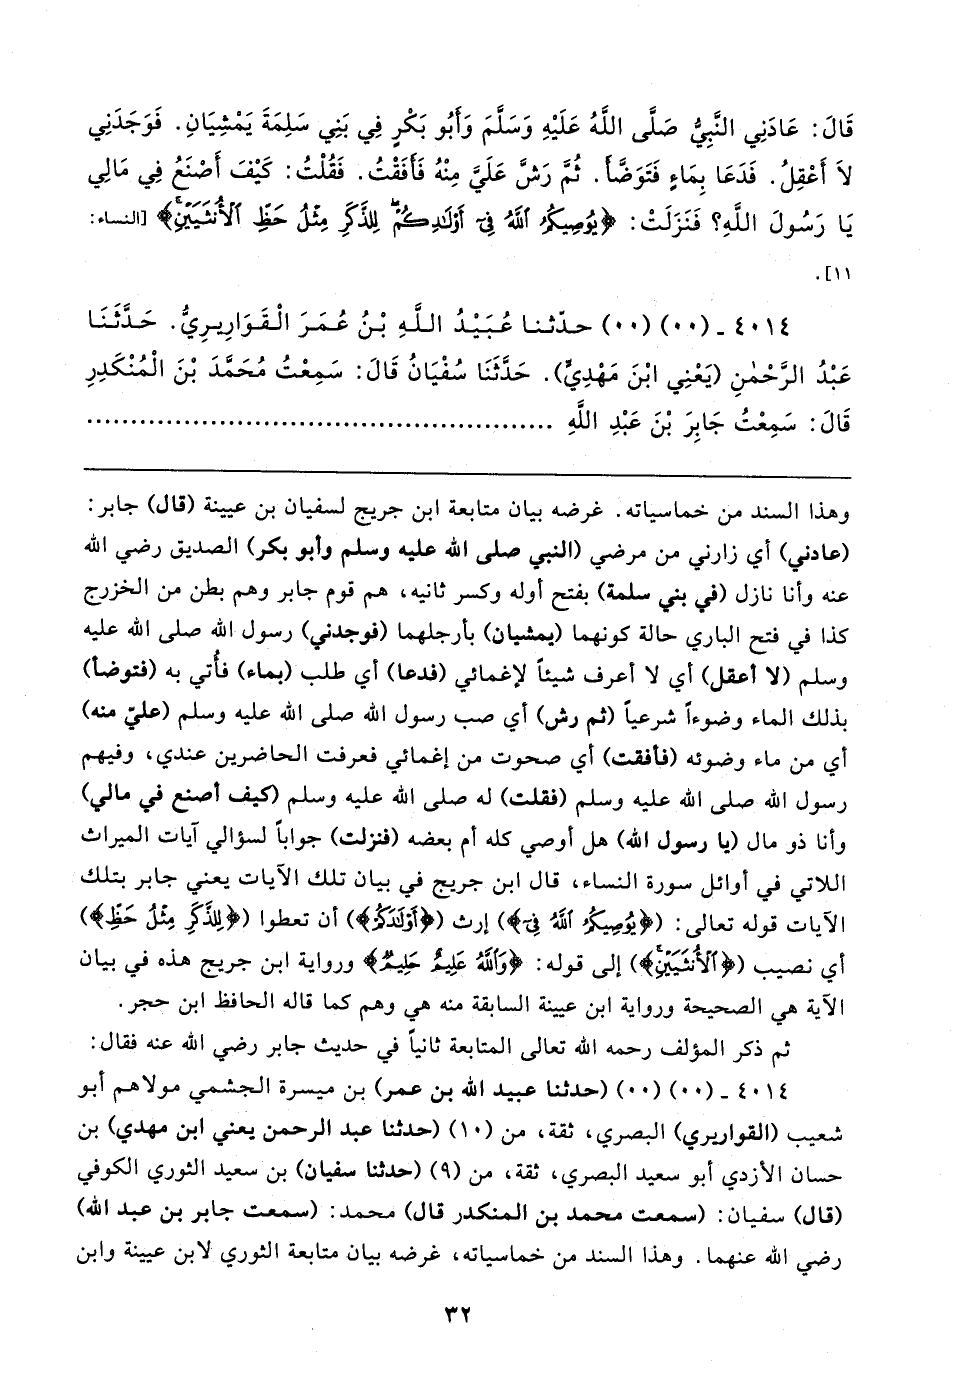 قَالَ: عَادَنِي النَّبِيُّ صَلَّى اللَّهُ عَلَيْهِ وَسَلَّمَ وَأَبُو بَكْرٍ فِي بَنِي سَلِمَةَ يَمْشِيَانِ. فَوَجَدَنِي
لاَ أَعْقِلُ. فَدَعَا بِمَاءٍ فَتَوَضَّأَ. ثُمَّ رَشَّ عَلَيَّ مِنْهُ فَأَفَقْتُ. فَقُلْتُ: كَيْفَ أَصْنَعُ فِي مَالِي
يَا رَسُولَ اللَّهِ؟ فَنَزَلَتْ: ﴿يُوصِيكُمُ ٱللَّهُ فِيٓ أَوْلَٰدِكُمْ لِلذَّكَرِ مِثْلُ حَظِّ ٱلْأُنثَيَيْنِ﴾ [النساء:
١١].
٤٠١٤ ـ (٠٠) (٠٠) حدّثنا عُبَيْدُ اللَّهِ بْنُ عُمَرَ الْقَوَارِيرِيُّ. حَدَّثَنَا
عَبْدُ الرَّحْمٰنِ (يَعْنِي ابْنَ مَهْدِيٍّ). حَدَّثَنَا سُفْيَانُ قَالَ: سَمِعْتُ مُحَمَّدَ بْنَ الْمُنْكَدِرِ
قَالَ: سَمِعْتُ جَابِرَ بْنَ عَبْدِ اللَّهِ ..................................................
وهذا السند من خماسياته. غرضه بيان متابعة ابن جريج لسفيان بن عيينة (قال) جابر:
(عادني) أي زارني من مرضي (النبي صلى الله عليه وسلم وأبو بكر) الصديق رضي الله
عنه وأنا نازل (في بني سلمة) بفتح أوله وكسر ثانيه، هم قوم جابر وهم بطن من الخزرج
كذا في فتح الباري حالة كونهما (يمشيان) بأرجلهما (فوجدني) رسول الله صلى الله عليه
وسلم (لا أعقل) أي لا أعرف شيئاً لإغمائي (فدعا) أي طلب (بماء) فأُتي به (فتوضأ)
بذلك الماء وضوءاً شرعياً (ثم رش) أي صب رسول الله صلى الله عليه وسلم (عليّ منه)
أي من ماء وضوئه (فأفقت) أي صحوت من إغمائي فعرفت الحاضرين عندي، وفيهم
رسول الله صلى الله عليه وسلم (فقلت) له صلى الله عليه وسلم (كيف أصنع في مالي)
وأنا ذو مال (يا رسول الله) هل أوصي كله أم بعضه (فنزلت) جواباً لسؤالي آيات الميراث
اللاتي في أوائل سورة النساء، قال ابن جريج في بيان تلك الآيات يعني جابر بتلك
الآيات قوله تعالى: (﴿يُوصِيكُمُ ٱللَّهُ فِيٓ﴾) إرث (﴿أَوْلَٰدِكُمْ﴾) أن تعطوا (﴿لِلذَّكَرِ مِثْلُ حَظِّ﴾)
أي نصيب (﴿ٱلْأُنثَيَيْنِ﴾) إلى قوله: ﴿وَٱللَّهُ عَلِيمٌ حَلِيمٌ﴾ ورواية ابن جريج هذه في بيان
الآية هي الصحيحة ورواية ابن عيينة السابقة منه هي وهم كما قاله الحافظ ابن حجر.
ثم ذكر المؤلف رحمه الله تعالى المتابعة ثانياً في حديث جابر رضي الله عنه فقال:
٤٠١٤ ـ (٠٠) (٠٠) (حدثنا عبيد الله بن عمر) بن ميسرة الجشمي مولاهم أبو
شعيب (القواريري) البصري، ثقة، من (١٠) (حدثنا عبد الرحمن يعني ابن مهدي) بن
حسان الأزدي أبو سعيد البصري، ثقة، من (٩) (حدثنا سفيان) بن سعيد الثوري الكوفي
(قال) سفيان: (سمعت محمد بن المنكدر قال) محمد: (سمعت جابر بن عبد الله)
رضي الله عنهما. وهذا السند من خماسياته، غرضه بيان متابعة الثوري لابن عيينة وابن
٣٢